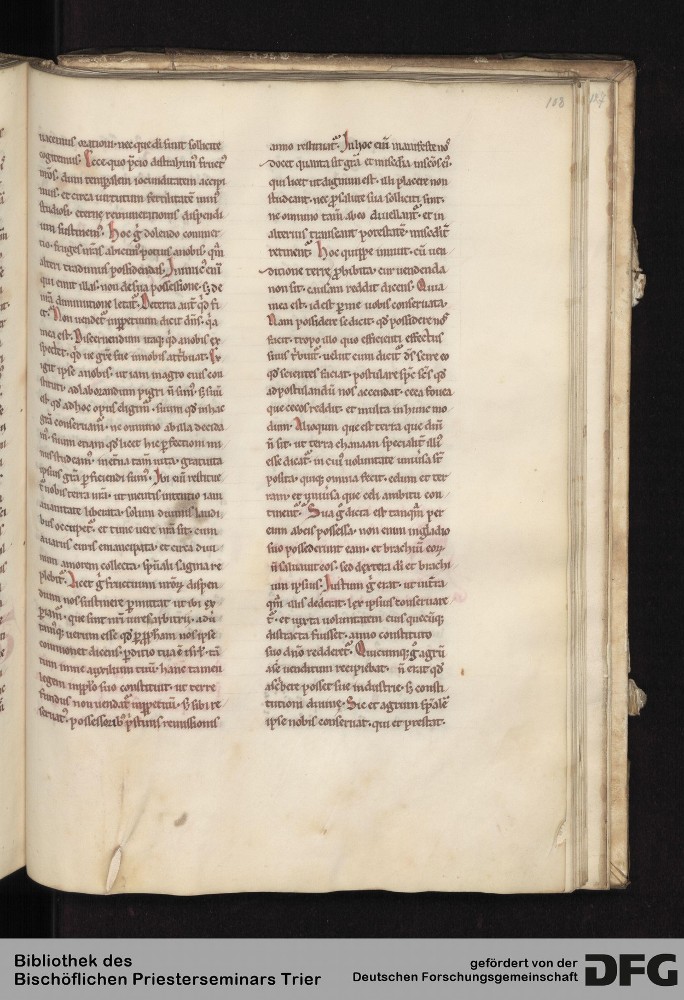 108 107
uacemus orationi· nec que di͞i sunt sollicite
cogitemus· Ecce quo p̄cio distrahim᷒ fruct᷒
n͞ros· dum temporalem iocunditatem accepi
mus· et circa uirtutum fertilitatem min᷒
studiosi· eterne remunerationis dispendi
um sustinem᷒· hoc g̊ dolendo commer
tio· fruges n͞ras abicim᷒ potius a nobis· q͞m
alteri tradimus possidendas· Inimic᷒ eni͞
qui emit illas· non de sua possessione· sꝫ de
n͞ra diminutione letat᷒· De terra aut͞ qd̓ fi
et· Non uendet᷒ inppetuum dicit dn͞s· q͞a
mea est· Discernendum itaq᷒ qd̓ a nobis ex
spectet· qd̓ ue gr͞e sue in nobis attribuat· Ex
igit ipse a nobis· ut iam magno eius con
stituti· ad laborandum pigri n̄ sim᷒·
est· qd̓ ad hoc opus digim᷒· suum qd̓ in hac
gr͞a conseruam᷒· ne omnino ab illa decida
m᷒· suum etiam qd̓ licet hic perfectioni mi
nus studeam᷒· in et͞na tam͞ uita· gratuita
ipsius gr͞a perficiendi sum᷒· Ibi eni͞ restitue
t᷒ nobis terra n͞ra· ut mentis intentio iam
a uanitate liberata· solum diuinis laudi
bus occupet᷒· et tunc uere n͞ra sit· cum
a uariis curis emancipata· et circa diui
num amorem collecta· sp͞uali sagina re
plebit᷒· Licet g̊ fructuum n͞rorꝫ dispen
dium nos sustinere permittat ut ibi ex
periam᷒· que sunt n͞ri uires arbitrii· adu͞
tamq᷒ uerum esse qd̓ per ipse
commonet dicens· perditio tua ex te isr͞l· ta͞
tum in me auxilium tuu͞· hanc tamen
legem in p̱lo suo constituit· ut terre
fundus non uendat᷒ inppetuu͞· sꝫ sibi re
seruat᷒· possessoribꝫ pristinis remissionis
anno restituit᷒· In hoc eni͞ manifeste nos
docet quanta sit gr͞a et misc͞dia in seos ei᷒·
qui licet ut dignum est· illi placere non
studeant· nec pro salute sua solliciti sint·
ne omnino tam͞ ab eo diuellant᷒· et in
alterius transeant potestate͞· misc͞dit͞
retinent᷒· hoc quippe innuit· cu͞ uen
ditione terre prohibita· cur uendenda
non sit· causam reddit dicens· Quia
mea est· id est per me uobis conseruata·
Nam possidere se dicit· qd̓ possidere nos
facit· tropo illo quo efficienti effectus
suus tribuit᷒· uelut cum dicit᷒ ds͞ scire eo
qd̓ scientes faciat· postulare sp͞c sc͞s qd̓
ad postulandu͞ nos accendat· ceca fouea
que cecos reddit· et multa in hunc mo
dum· Alioquin que est terra que dn͞i
n̄ sit· ut terra chanaan specialit͞ illi᷒
esse dicat᷒· in cui᷒ uoluntate uniu͞sa st͞
posita· quiq᷒ omnia fecit· celum et ter
ram· et uniu͞sa que celi ambitu con
tinent᷒· Sua g̊ dicta est tanq͞m per
eum ab eis possessa· non enim in gladio
suo possederunt eam· et brachiu͞ eorꝫ
n̄ saluauit eos· sed dextera di͞ et brachi
um ipsius· Iustum g̊ erat· ut int͞ra
q͞m illis dederat· lex ipsius conseruare
t᷒· et iuxta uoluntatem eius quecu͞q᷒
distracta fuisset· anno constituto
suo dn͞o redderet᷒· Quicumq᷒ g̊ agru͞
a se uenditum recipiebat· n̄ erat qd̓
asc͞bere posset sue industrie· sꝫ consti
tutioni diuine· Sic et agrum sp͞uale͞
ipse nobis conseruat· qui et prestat·
Bibliothek des
Bischöflichen Priesterseminars Trier
gefördert von der
Deutschen Forschungsgemeinschaft
DFG